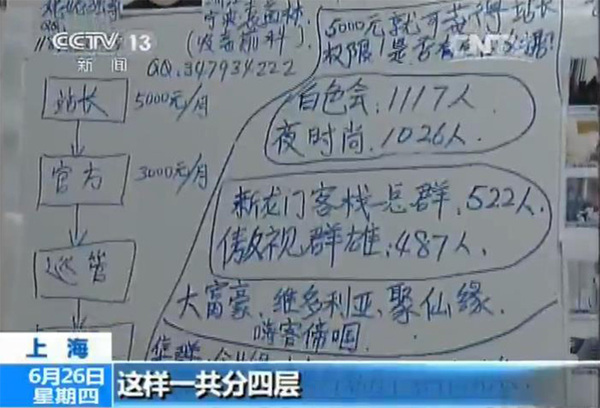 CCTV 13
新闻
(收益前科)
QQ:347934222
5000元就可获得站长
权限!是否
站长 5000元/月
官方 3000元/月
巡管
白色会:1117人
夜时尚:1026人.
新龙门客栈总群:522人.
傲视群雄:487人.
大富豪、维多利亚、聚仙缘、
嗨客帝国
上海
6月26日
星期四
这样一共分四层